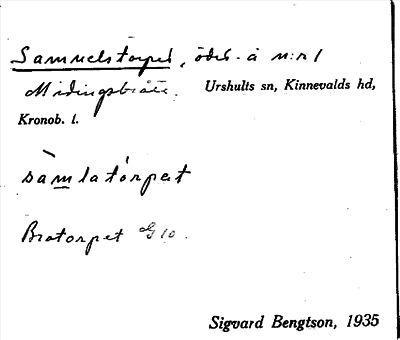 Samuelstorpet, ödel. å n:r 1
Midingsbråte. Urshults sn, Kinnevalds hd,
Kronob. l.
sàmlatórpet
Brotorpet G 10.
Sigvard Bengtson, 1935